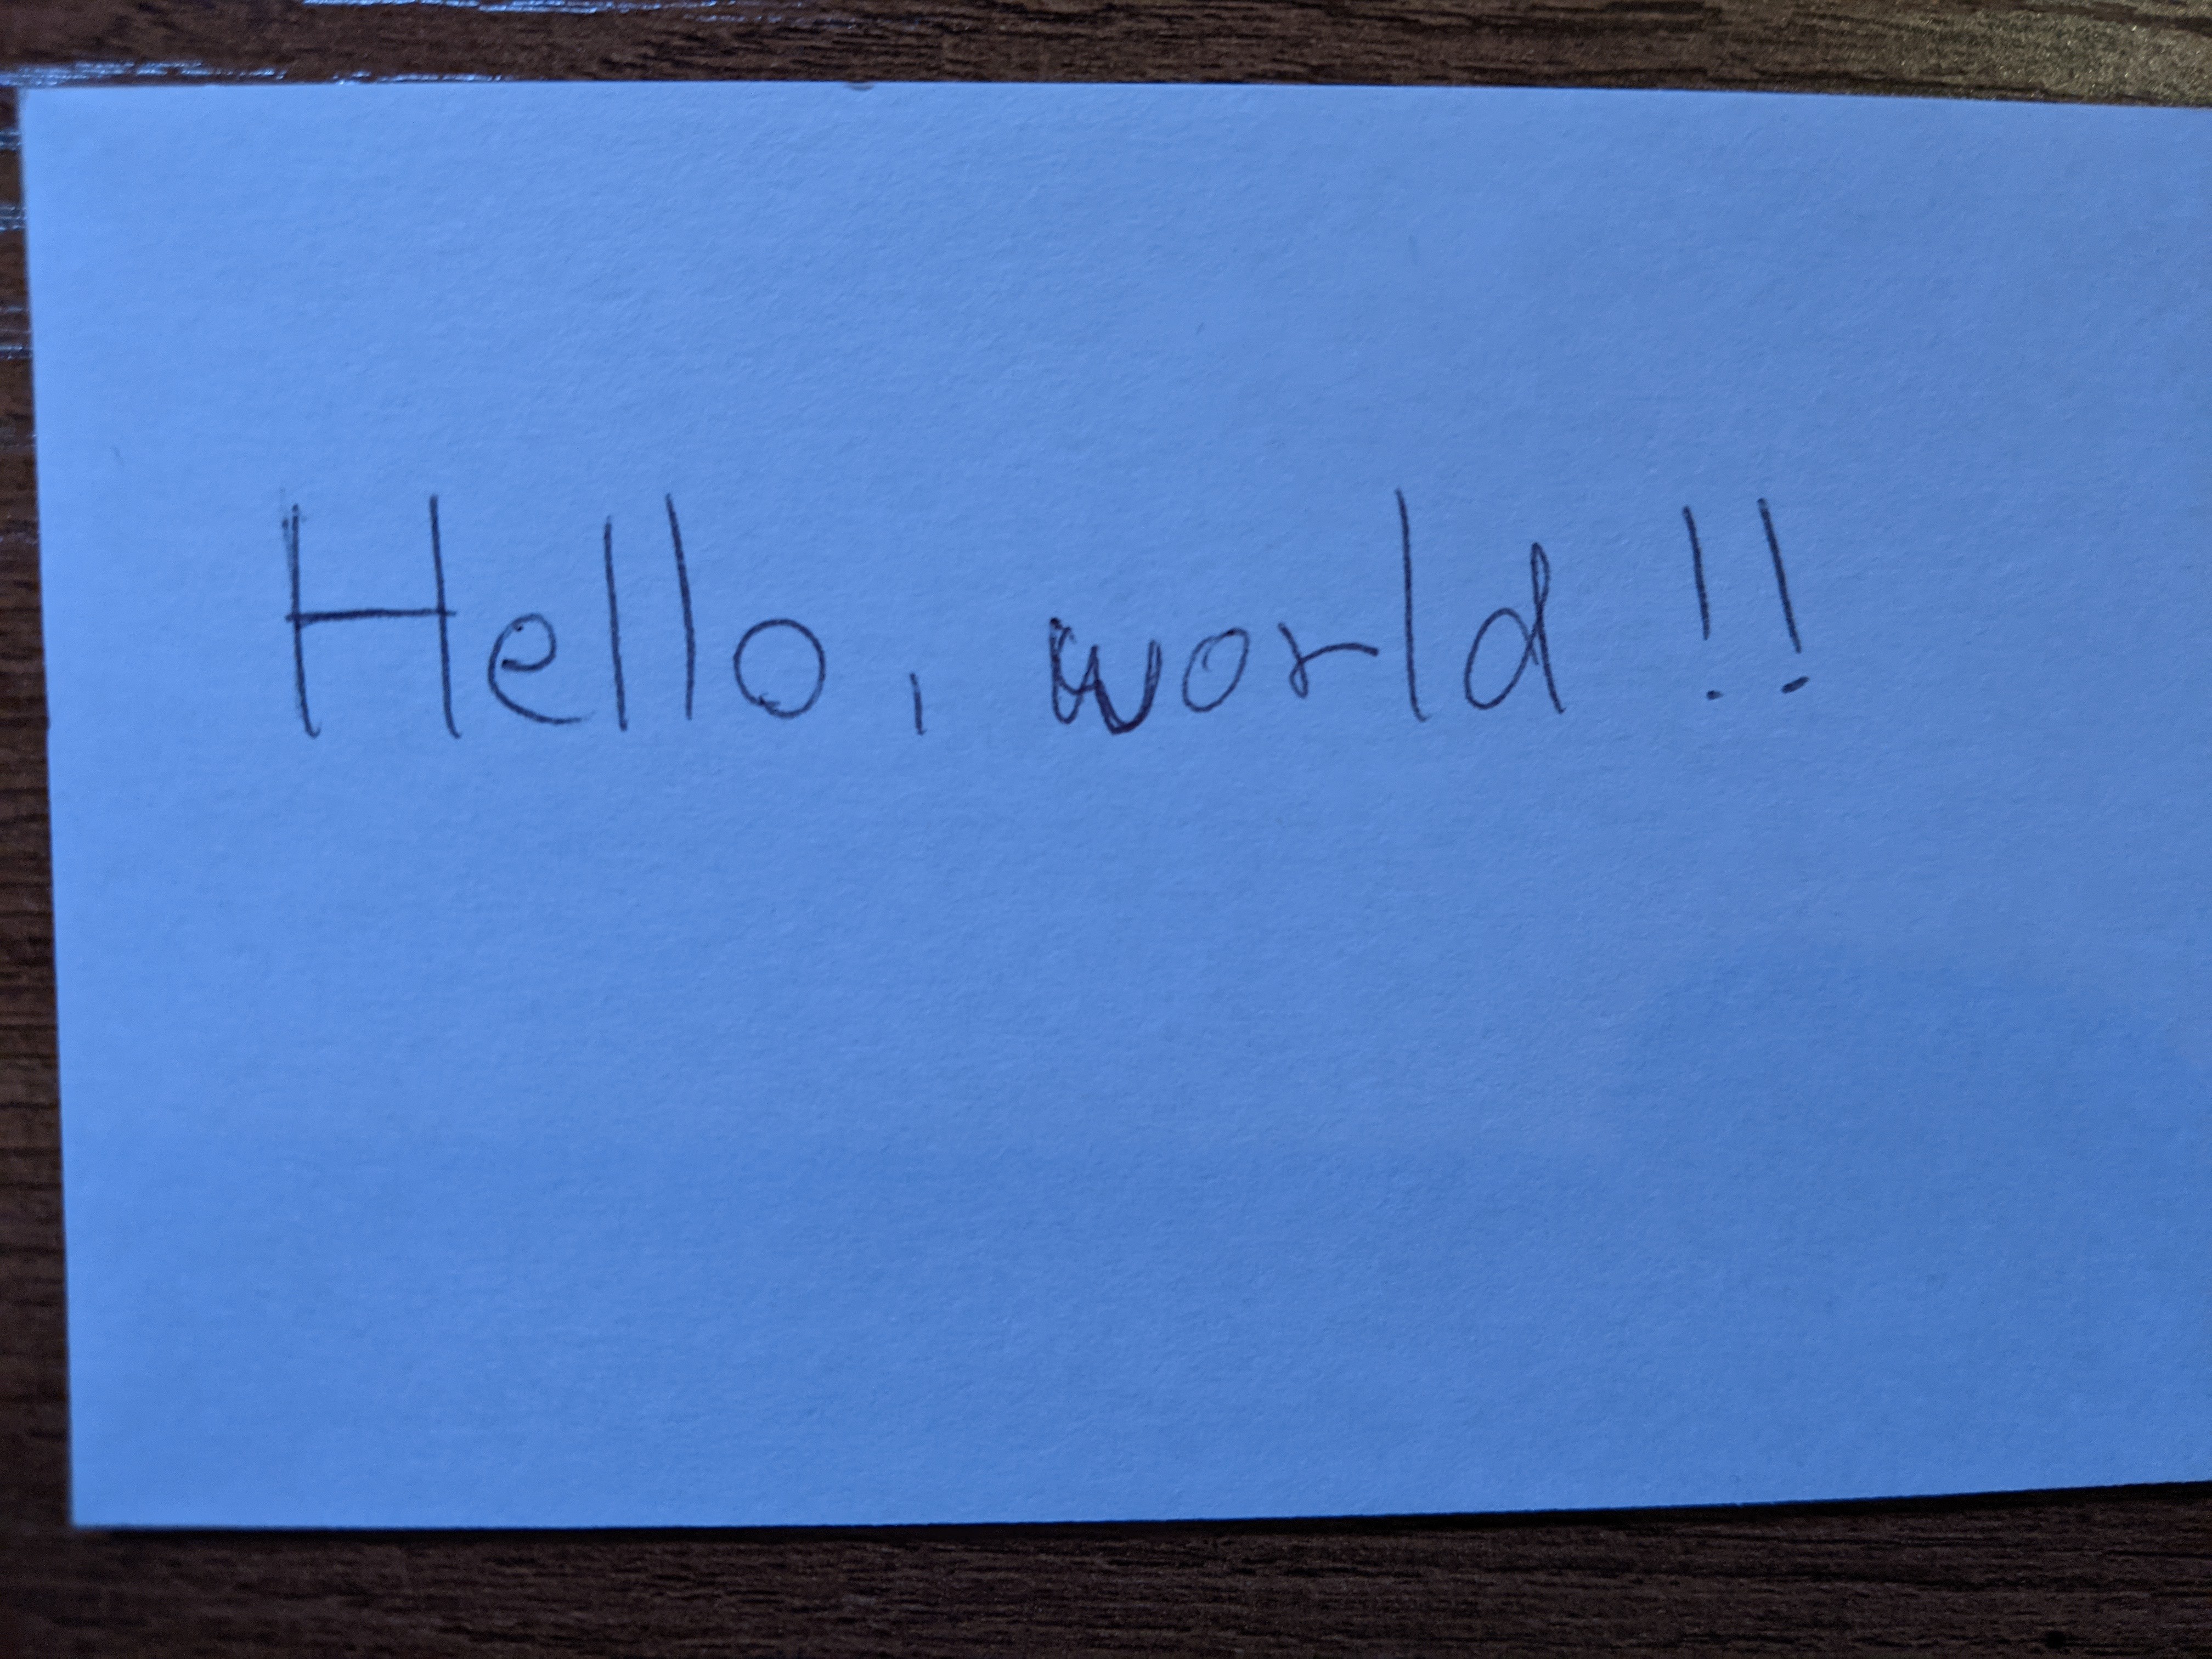 Hello, world!!